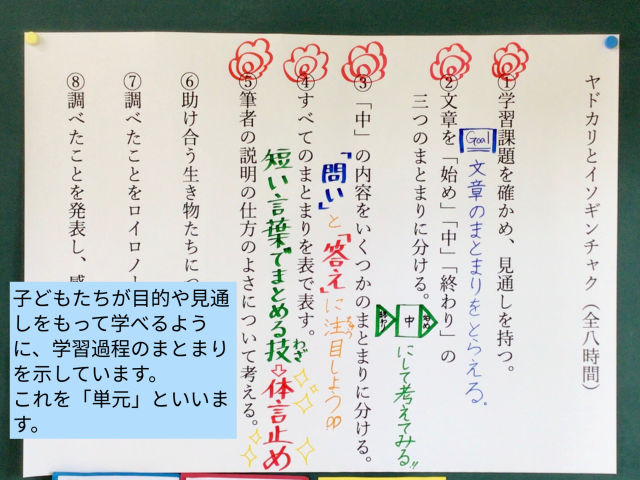 ヤドカリとイソギンチャク（全八時間）
①学習課題を確かめ、見通しを持つ。
Goal 文章のまとまりをとらえる。
②文章を「始め」「中」「終わり」の
三つのまとまりに分ける。
始め 中 終わり にして考えてみる!!
③「中」の内容をいくつかのまとまりに分ける。
「問い」と「答え」に注目しよう
ちゅう
④すべてのまとまりを表で表す。
短い言葉でまとめる技⇨体言止め
わざ
⑤筆者の説明の仕方のよさについて考える。
⑥助け合う生き物たちにつ
⑦調べたことをロイロノー
⑧調べたことを発表し、感
子どもたちが目的や見通
しをもって学べるよう
に、学習過程のまとまり
を示しています。
これを「単元」といいま
す。